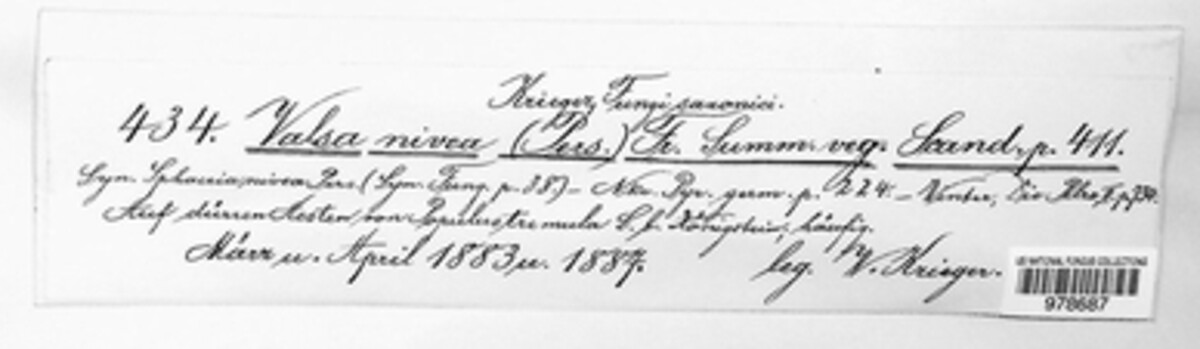 Krieger, Fungi saxonici.
434. Valsa nivea (Pers.) Fr. Summ. veg. Scand. p. 411.
Syn. Sphaeria nivea Pers. (Syn. Fung. p. 38.) – Nke. Pyr. germ. p. 224. – Winter, Die Pilze, II. p.
Auf dürren Aesten von Populus tremula L. b. Königstein, häufig.
März u. April 1883 u. 1887.
leg. W. Krieger.
US NATIONAL FUNGUS COLLECTIONS
978687